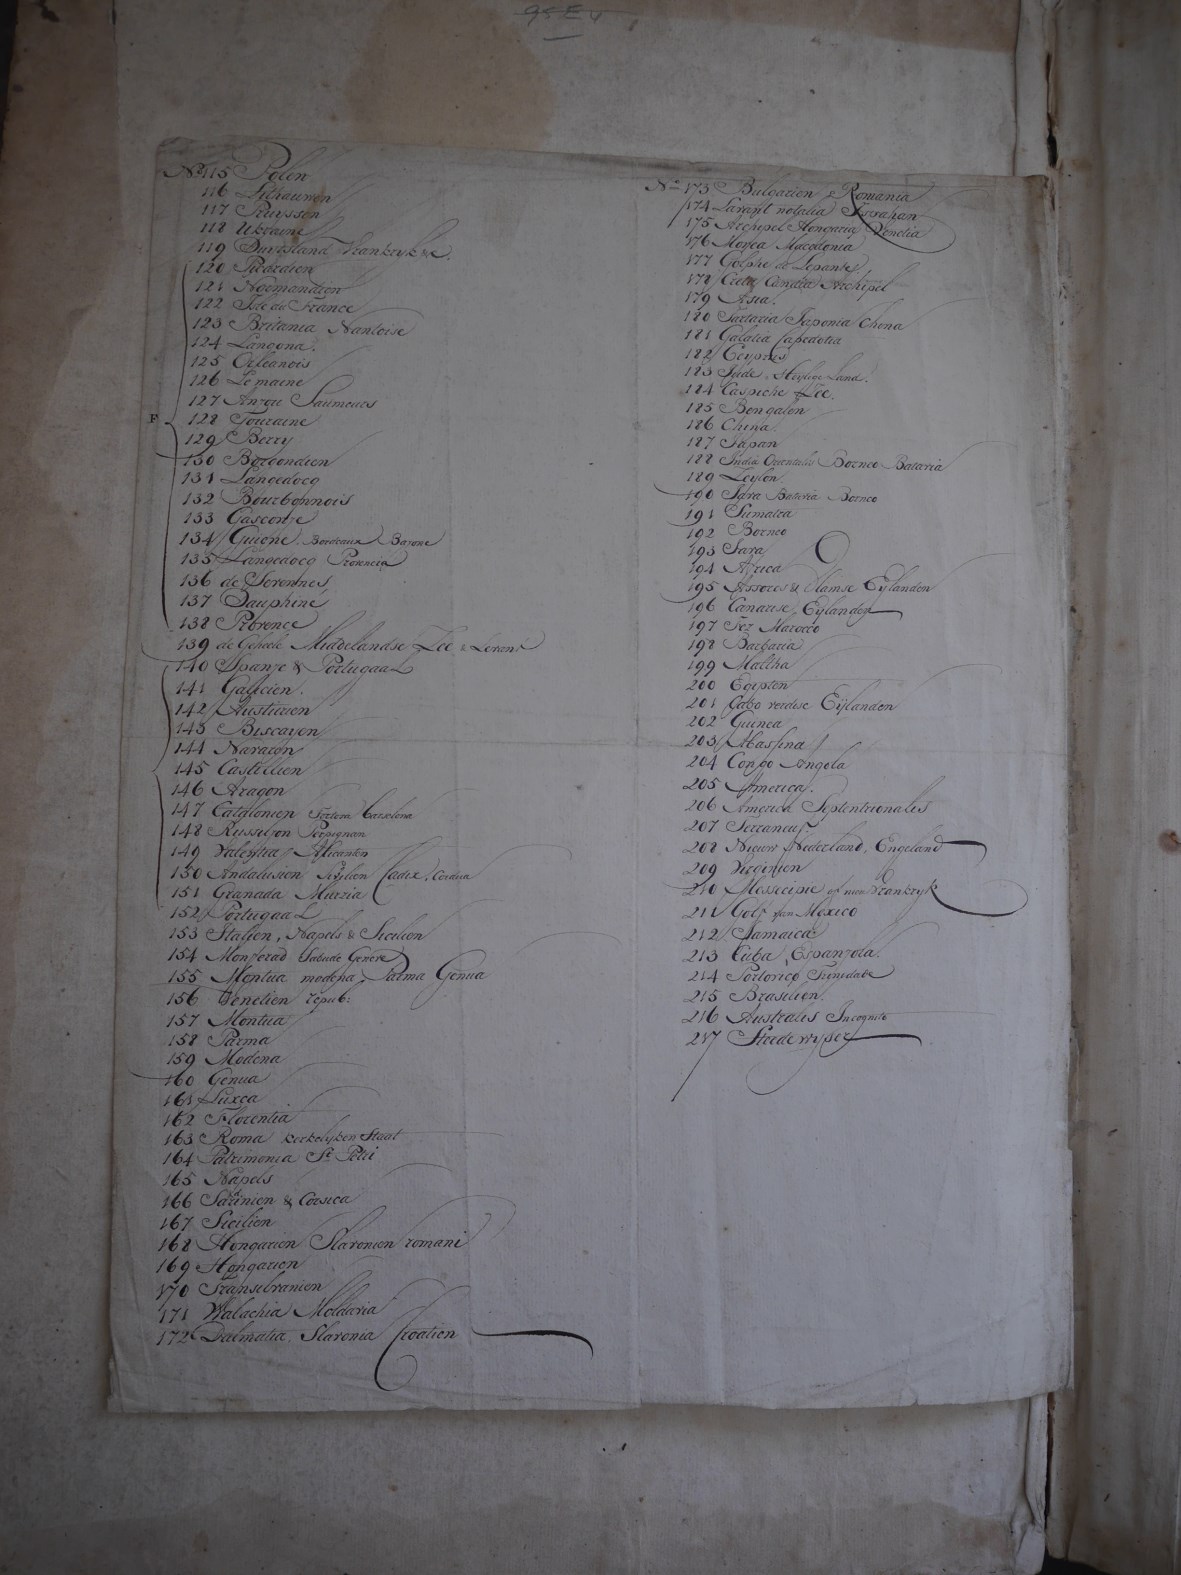 No 115 Polen
116 Lithauwen
117 Pruyssen
118 Ukraine
119 Duytsland Vrankryk &c.
120 Picardien
121 Noormandien
122 Isle de France
123 Britania Nantoise
124 Langona.
125 Orleanois
126 Le maine
127 Anjou Saumeurs
F 128 Touraine
129 Berry
130 Borgondien
131 Langedocq
132 Bourbonnois
133 Gasconje
134 Guiene. Bordeaux Bayone
135 Langedocq Provencia
136 de Sevennes
137 Dauphiné
138 Provence
139 de Geheele Middelandse Zee & Levant
140 Spanje & Portugaal
141 Galicien.
142 Austurien
143 Biscayen
144 Navaren
145 Castilien
146 Aragon
147 Catalonien Tortosa Barselona
148 Russiljon Perpignan
149 Valentia Alicanten
150 Andalusien Sivilien Cadix. Cordua
151 Granada Murzia
152 Portugaal
153 Italien, Napels & Sicilien
154 Monferad Genëve
155 Montua modena, Parma Genua
156 Venetien repub:
157 Montua
158 Parma
159 Modena
160 Genua
161 Lucca
162 Florentia
163 Roma kerkelyken Staat
164 Patrimonia St Petri
165 Napels
166 Sarinien & Corsica
167 Sicilien
168 Hongarien Slavonien romani
169 Hongarien
170 Transilvanien
171 Walachia Moldavia
172 Dalmatia, Slavonia Croatien
No 173 Bulgarien, Romania
174 Levant notalia Ispahan
175 Archipel Hongaria Venetia
176 Morea Macedonia
177 Golphe de Lepante
178 Creta Candia Archipel
179 Asia.
180 Tartaria Japonia China
181 Galatia Capedotia
182 Ceyprus
183 Jude. Heylige Land.
184 Caspiche Zee.
185 Bengalen
186 China
187 Japan
188 India Orientalis Borneo Batavia
189 Zeylon
190 Java Batavia Borneo
191 Sumatra
192 Borneo
193 Java
194 Africa
195 Assores & Vlamse Eylanden
196 Canarise Eylanden
197 Fez Marocco
198 Barbaria
199 Maltha
200 Egipten
201 Cabo verdise Eÿlanden
202 Guinea
203 Abassina
204 Congo Angola
205 America.
206 America Septentrionales
207 Terraneuf.
208 Nieuw Nederland, Engeland
209 Virginien
210 Messecipie of nieu Vrankryk
211 Golf van Mexico
212 Jamaica
213 Cuba, Espanjola.
214 Portorico
215 Brasilien.
216 Australis Incognito
217 Steedewyser